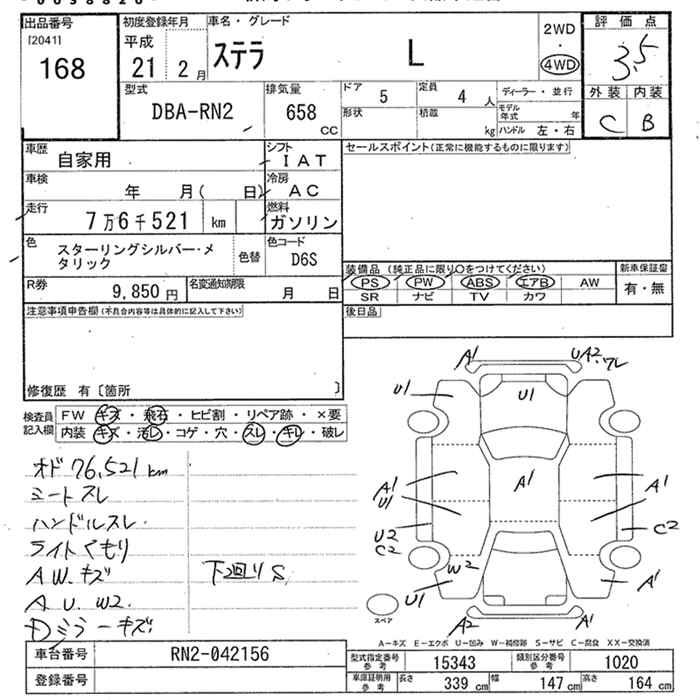 出品番号
[2041]
168
初度登録年月
平成
21 2月
車名・グレード
ステラ L
2WD
・
4WD
評価点
3.5
型式
DBA-RN2
排気量
658
cc
ドア 5
定員 4 人
形状
積載
kg
ディーラー・並行
モデル年式 年
ハンドル 左・右
外装 内装
C B
車歴 自家用
シフト IAT
セールスポイント(正常に機能するものに限ります)
車検 年 月( 日)
冷房 AC
走行 7万6千521 km
燃料 ガソリン
色 スターリングシルバー・メタリック
色替
色コード D6S
装備品 (純正品に限り○をつけてください)
新車保証書
PS PW ABS エアB AW
有・無
SR ナビ TV カワ
R券 9,850円
名変通知期限 月 日
後日品
注意事項申告欄(不具合内容等は具体的に記入して下さい)
修復歴 有〔箇所 〕
検査員記入欄
FW キズ・飛石・ヒビ割・リペア跡・×要
内装 キズ・汚レ・コゲ・穴・スレ・キレ・破レ
オド76,521km
シートスレ
ハンドルスレ
ライトくもり
AW.キズ
A U. W2.
Dミラーキズ
下回りS
A1
UA2.ワレ
U1
U1
A1
U1
A1
A1
U2
C2
C2
W2
U1
A1
A2
A1
スペア
A－キズ E－エクボ U－凹み W－補修跡 S－サビ C－腐食 XX－交換済
車台番号 RN2-042156
登録番号
型式指定番号 参考 15343
類別区分番号 参考 1020
車庫証明用 参考
長さ 339 cm
幅 147 cm
高さ 164 cm